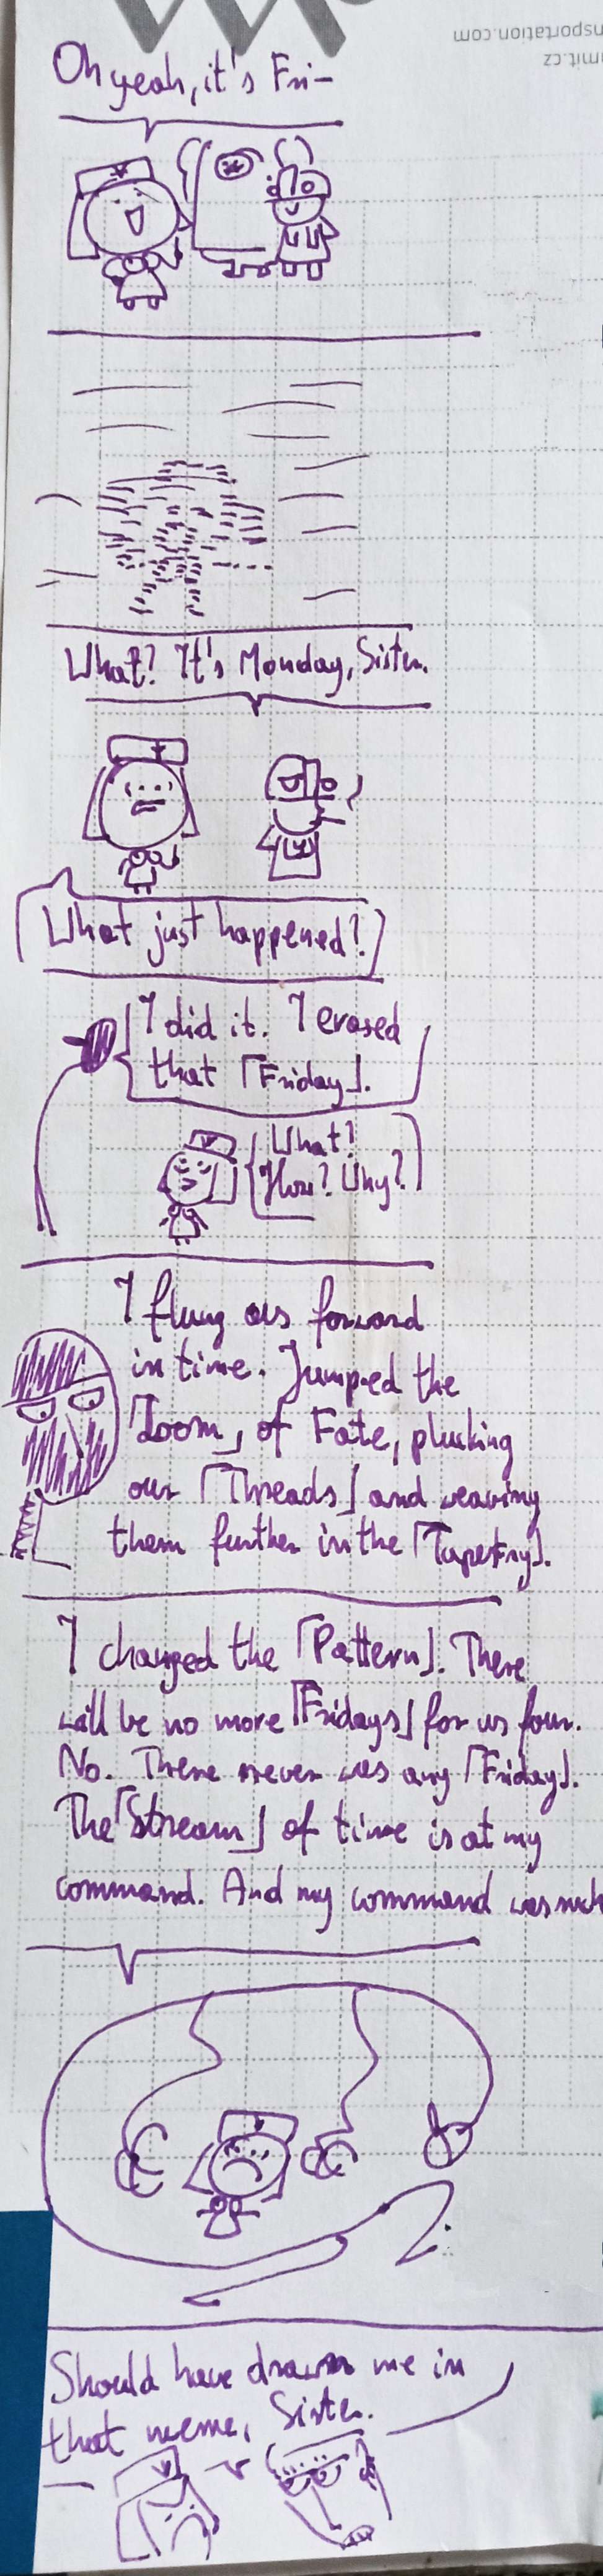 nsportation.com
mit.cz
Oh yeah, it's Fri-
What? It's Monday, Sister.
What just happened?
I did it. I erased
that 「Friday」.
What?
How? Why?
I flung us forward
in time. Jumped the
「Loom」 of Fate, plucking
our 「Threads」 and weaving
them further in the 「Tapestry」.
I changed the 「Pattern」. There
will be no more 「Fridays」 for us four.
No. There never was any 「Friday」.
The 「Stream」 of time is at my
command. And my command was such
Should have drawn me in
that meme, Sister.